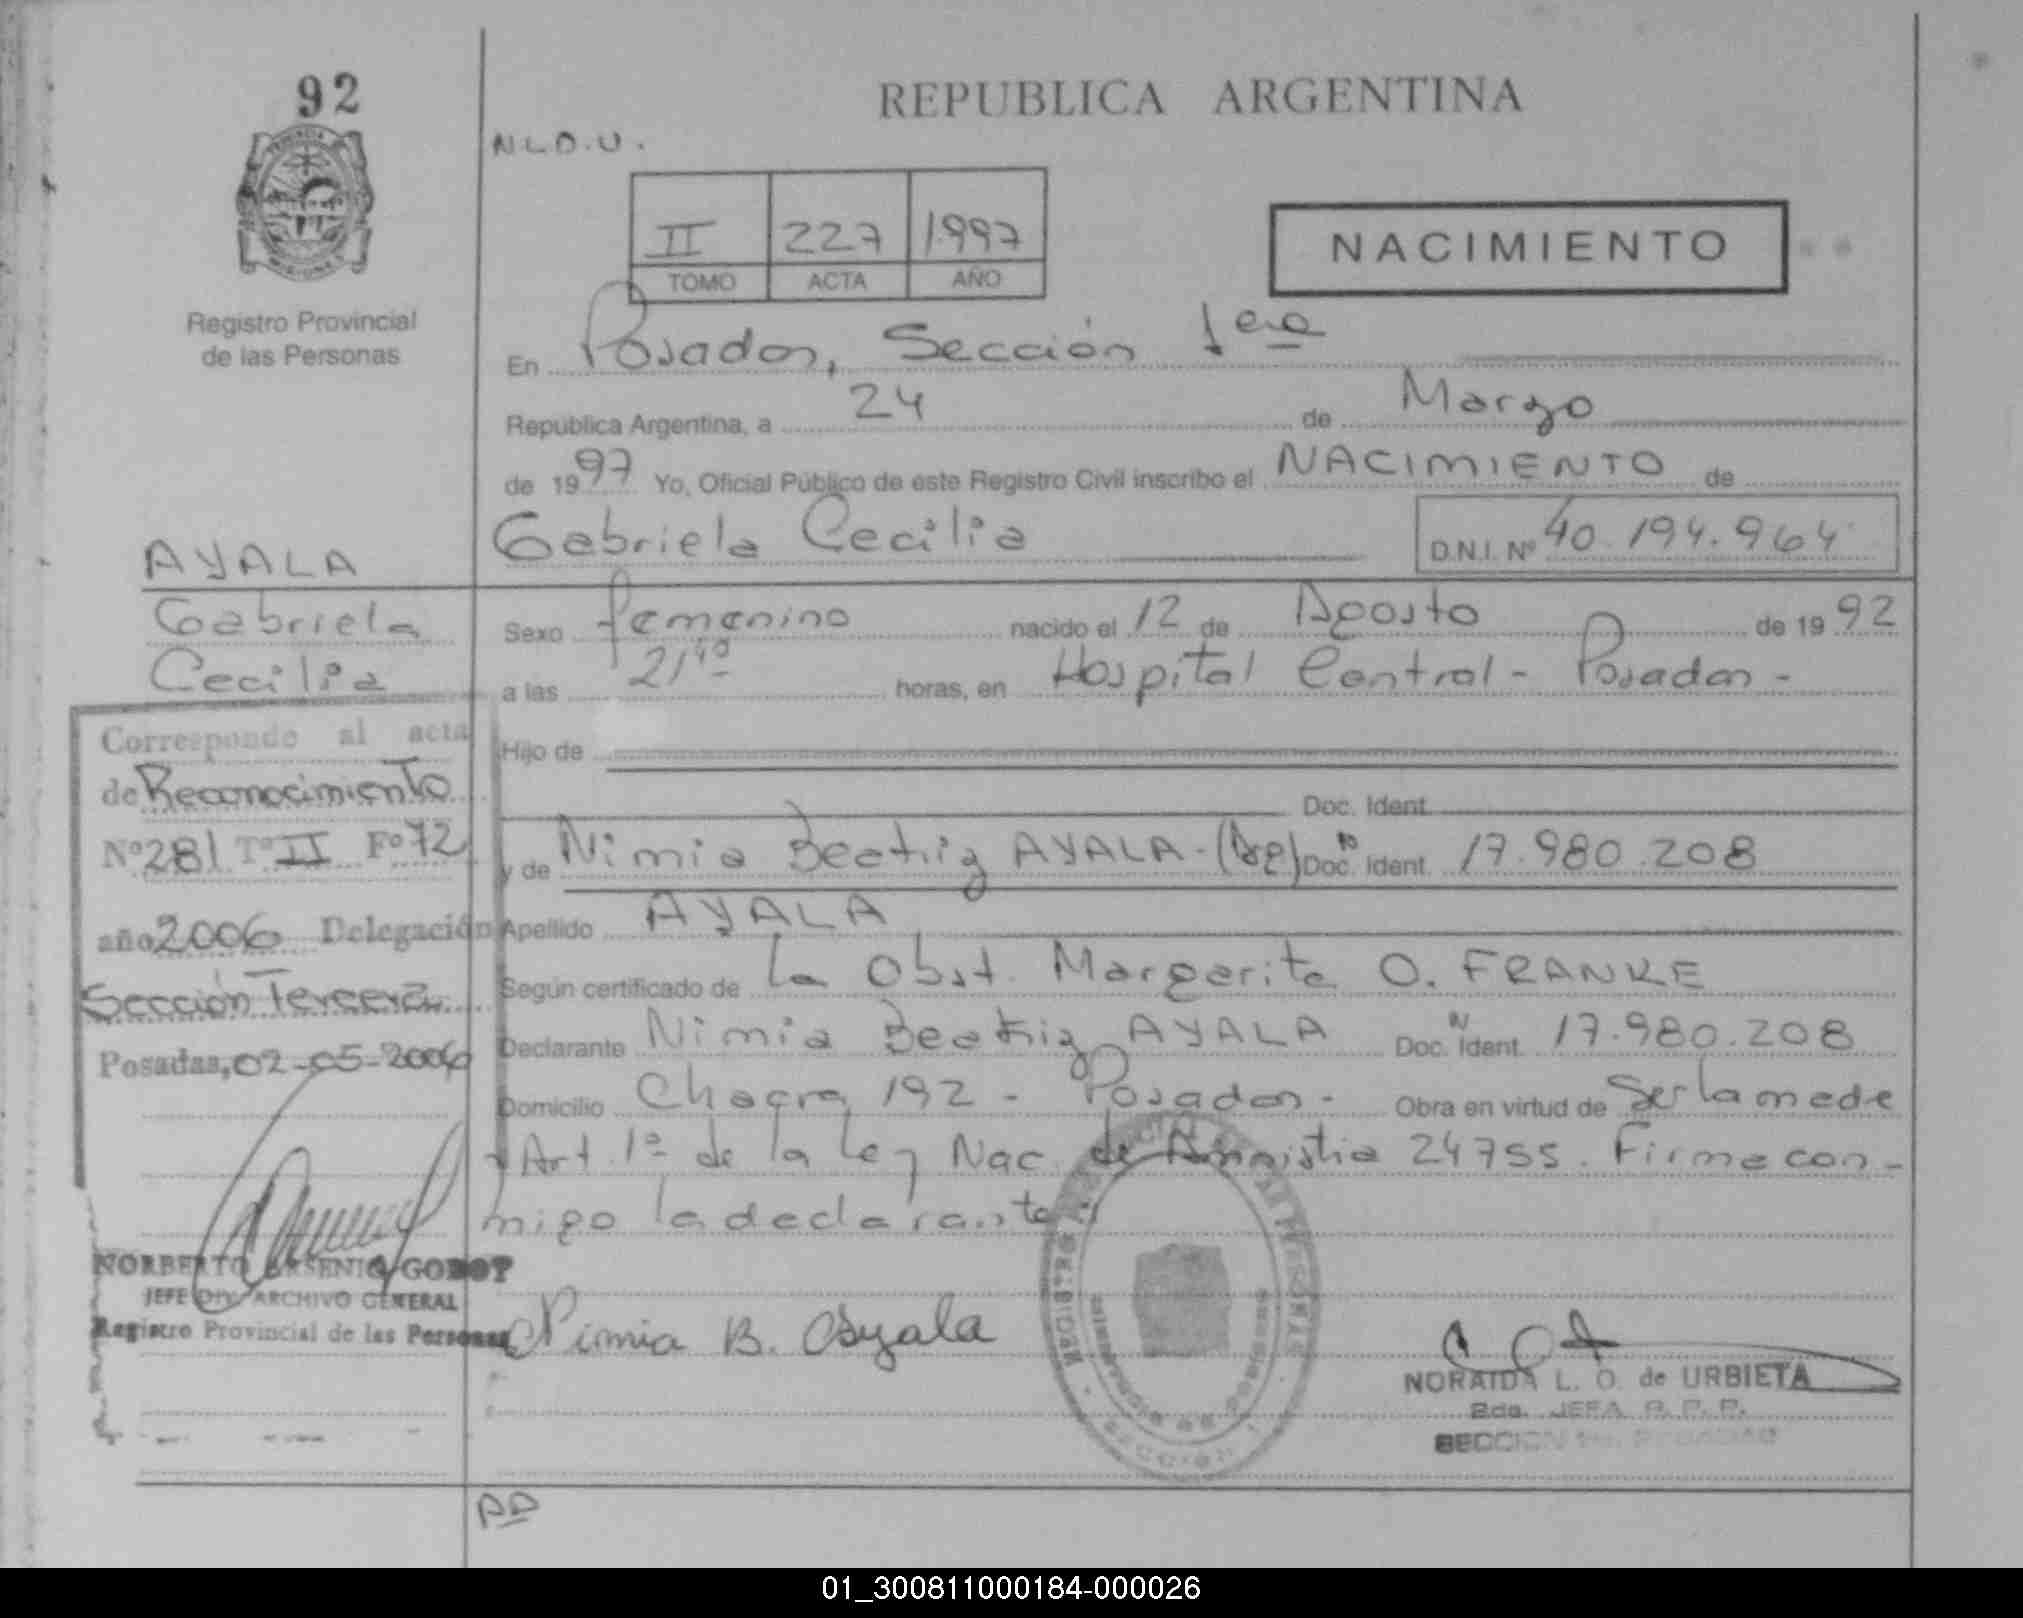 92
REPUBLICA ARGENTINA
N.L.D.U.
II 227 1.997
TOMO ACTA AÑO
NACIMIENTO
Registro Provincial
de las Personas
En Posadas, Sección 1era
República Argentina, a 24 de Marzo
de 1997 Yo, Oficial Público de este Registro Civil inscribo el NACIMIENTO de
Gabriela Cecilia D.N.I. Nº 40.194.964
AYALA
Gabriela
Cecilia
Sexo femenino nacido el 12 de Agosto de 1992
a las 21 horas, en Hospital Central - Posadas -
Hijo de
Doc. Ident.
y de Nimia Beatriz AYALA - (Arg) Doc. Ident. 17.980.208
Apellido AYALA
Según certificado de la Obst. Margarita O. FRANKE
Declarante Nimia Beatriz AYALA Doc. Ident. 17.980.208
Domicilio Chacra 192 - Posadas - Obra en virtud de Ser la madre
Art. 1º de la Ley Nac. de Amnistia 24755. Firma con-
migo la declarante
Corresponde al acta
de Reconocimiento
Nº 281 Tº II Fº 72
año 2006 Delegación
Sección Tercera
Posadas, 02-05-2006
NORBERTO ARSENIO GODOY
JEFE DIV. ARCHIVO GENERAL
Registro Provincial de las Personas
Nimia B. Ayala
NORAIDA L. O. de URBIETA
2da. JEFA R. P. P.
SECCION POSADAS
01_300811000184-000026